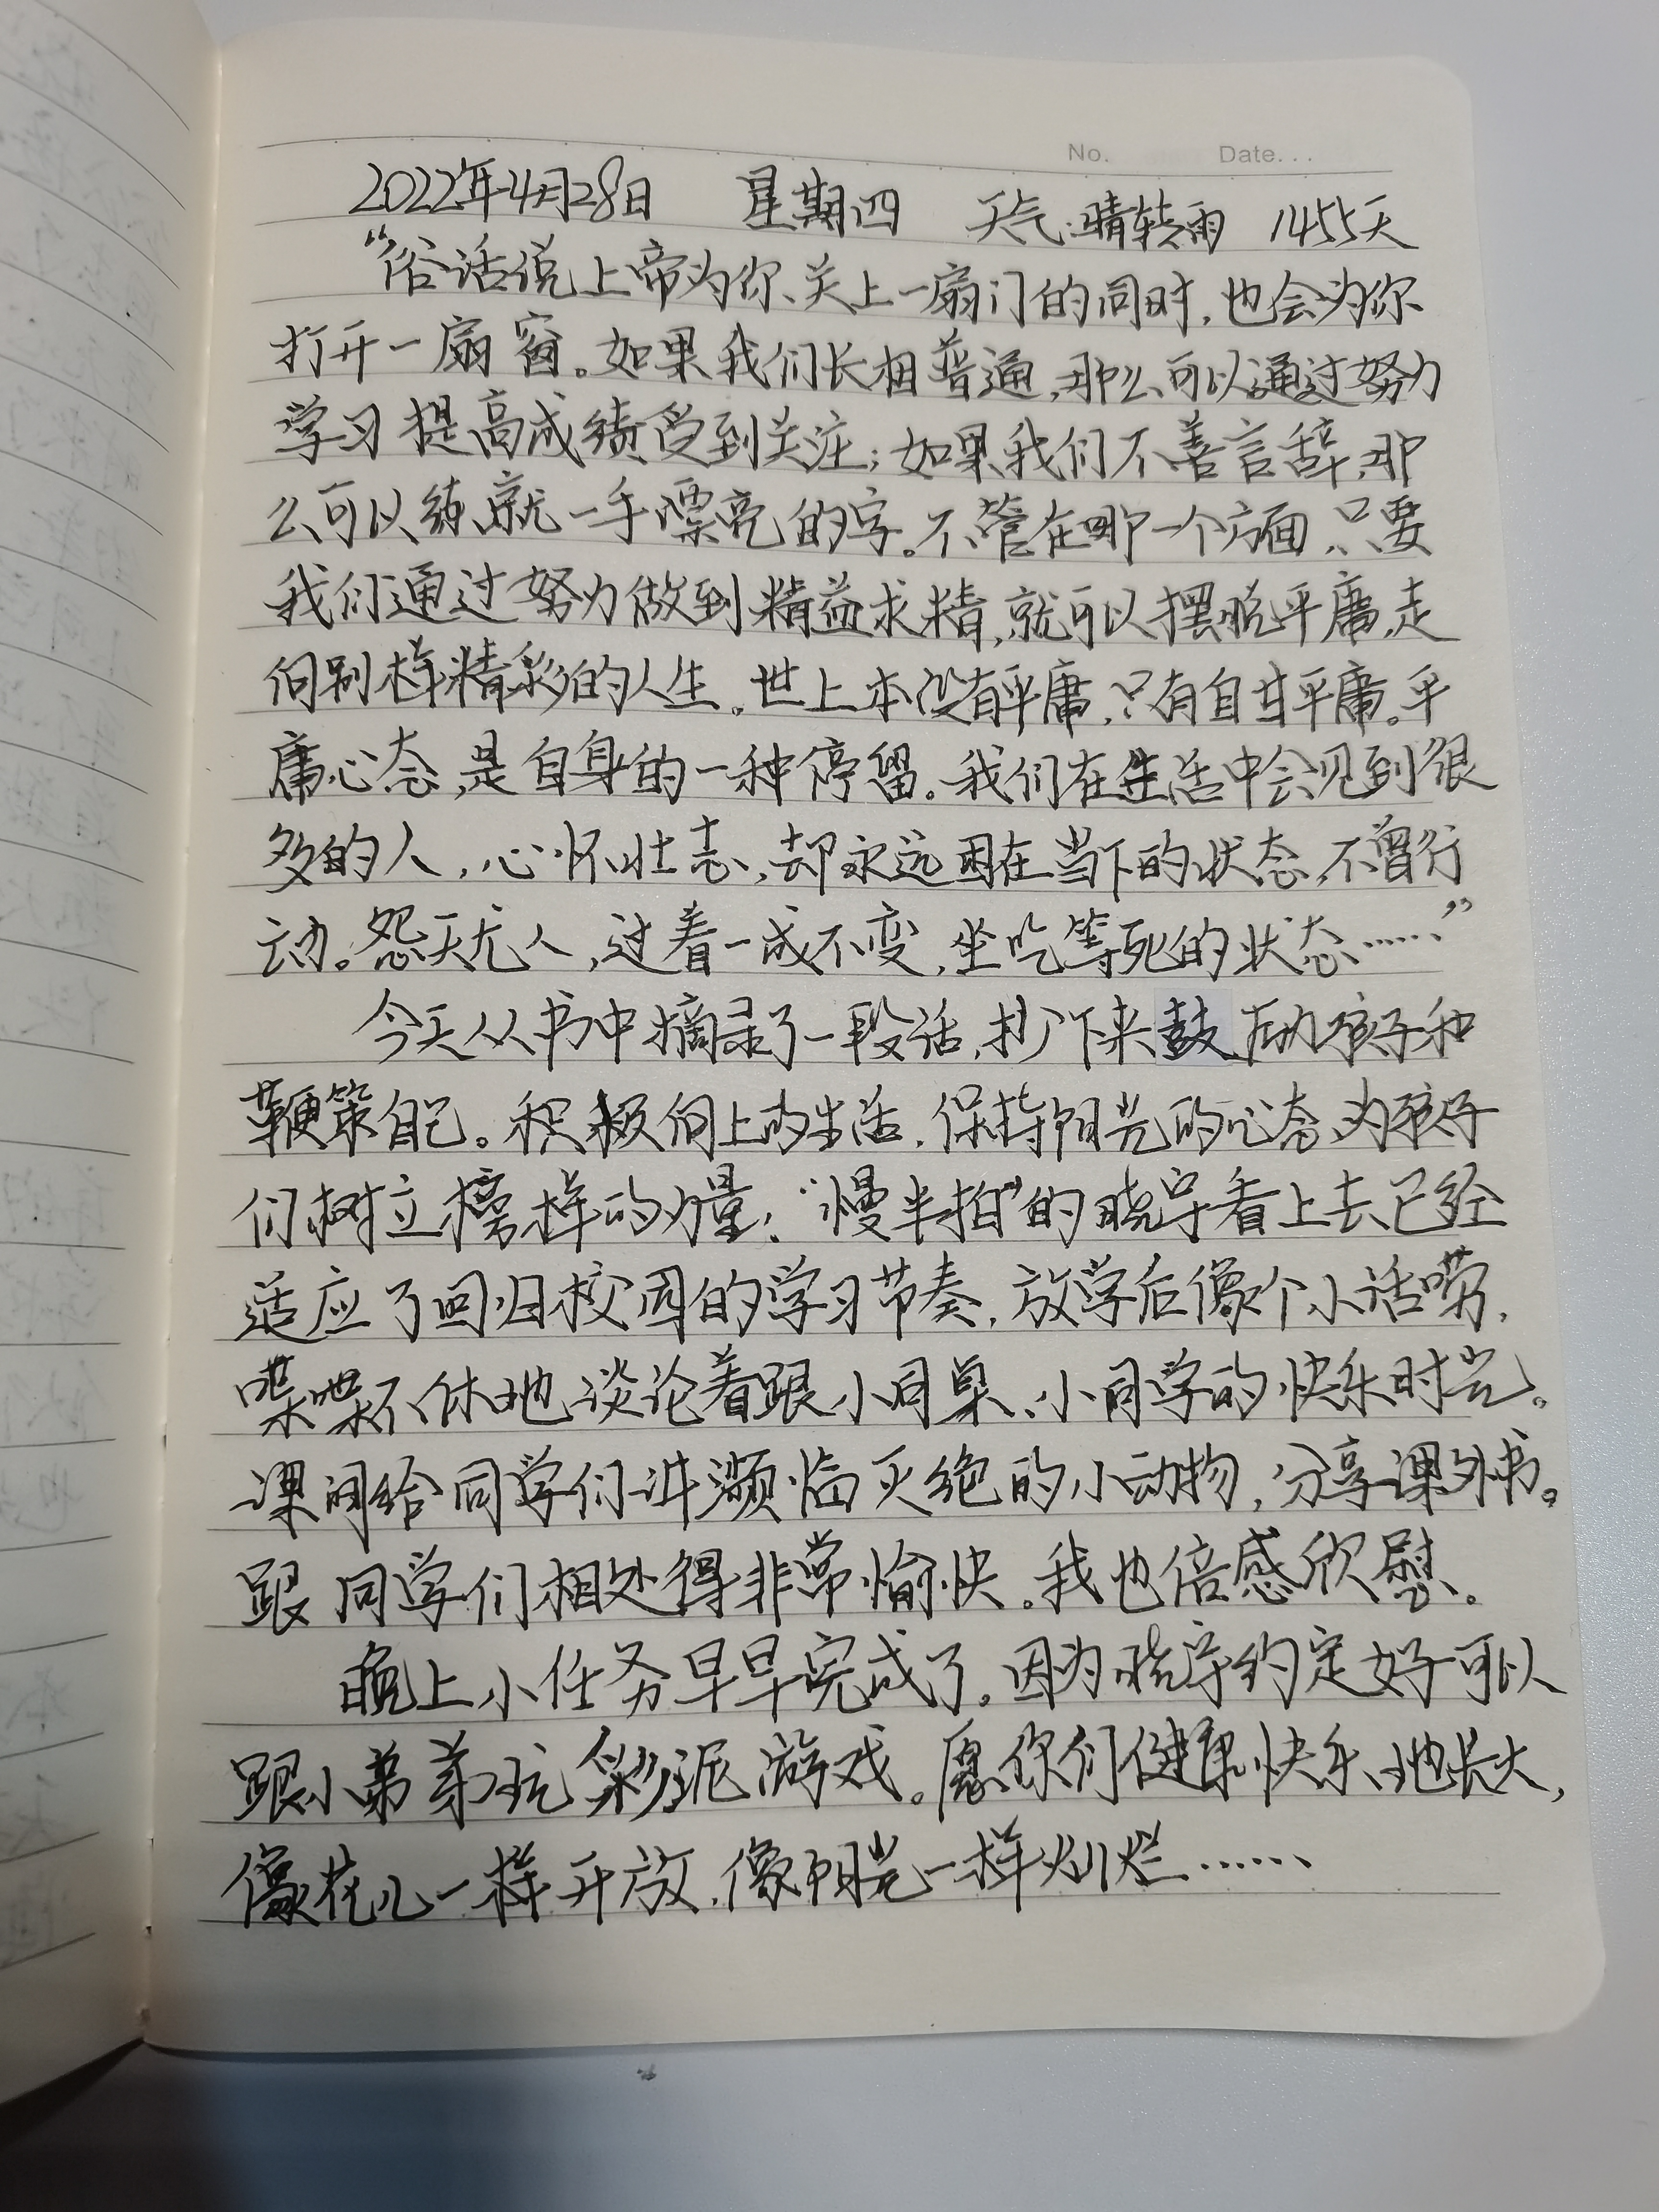 No. Date...
2022年4月28日 星期四 天气:晴转雨 1455天
“俗话说上帝为你关上一扇门的同时,也会为你
打开一扇窗。如果我们长相普通,那么可以通过努力
学习提高成绩受到关注;如果我们不善言辞,那
么可以练就一手漂亮的字。不管在哪一个方面,只要
我们通过努力做到精益求精,就可以摆脱平庸,走
向别样精彩的人生。世上本没有平庸,只有自甘平庸。平
庸心态,是自身的一种停留。我们在生活中会见到很
多的人,心怀壮志,却永远困在当下的状态,不曾行
动。怨天尤人,过着一成不变,坐吃等死的状态……”
今天从书中摘录了一段话,抄下来鼓励孩子和
鞭策自己。积极向上的生活,保持阳光的心态,为孩子
们树立榜样的力量!“慢半拍”的晓宇看上去已经
适应了回归校园的学习节奏,放学后像个小话唠,
喋喋不休地谈论着跟小同桌、小同学的快乐时光。
课间给同学们讲濒临灭绝的小动物,分享课外书。
跟同学们相处得非常愉快。我也倍感欣慰。
晚上小任务早早完成了。因为晓宇约定好可以
跟小弟弟玩彩泥游戏。愿你们健康快乐地长大,
像花儿一样开放,像阳光一样灿烂……